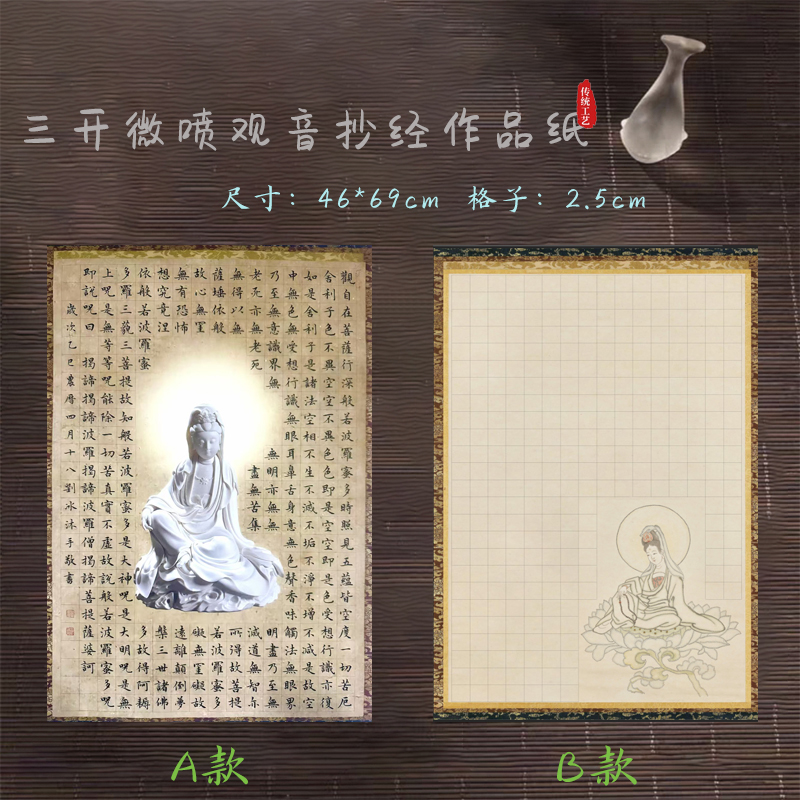 三开微喷观音抄经作品纸
传统工艺
尺寸：46*69cm 格子：2.5cm
觀自在菩薩行深般若波羅蜜多時照見五蘊皆空度一切苦厄
舍利子色不異空空不異色色即是空空即是色受想行識亦復
如是舍利子是諸法空相不生不滅不垢不淨不增不減是故空
中無色無受想行識無眼耳鼻舌身意無色聲香味觸法無眼界
乃至無意識界無 無明亦無無 明盡乃至無
老死亦無老死 盡無苦集 滅道無智亦
無得以無 所得故菩提
薩埵依般 若波羅蜜多
故心無罣 礙無罣礙故
無有恐怖 遠離顛倒夢
想究竟涅 槃三世諸佛
依般若波羅蜜 多故得阿耨
多羅三藐三菩提故知般若波羅蜜多是大神呪是大明呪是無
上呪是無等等呪能除一切苦真實不虛故說般若波羅蜜多呪
即說呪曰 揭諦揭諦波羅揭諦波羅僧揭諦菩提薩婆訶
歲次乙巳農曆四月十八劉冰沐手敬書
A款
B款